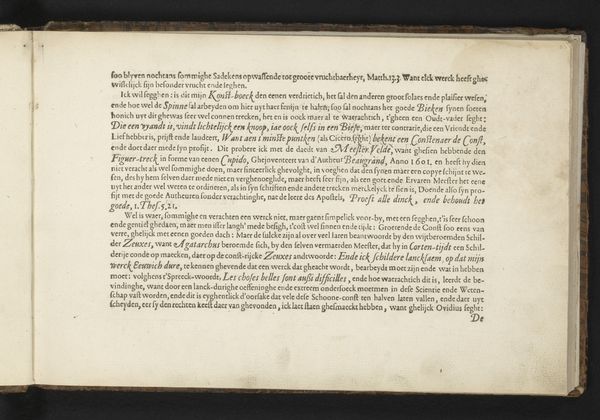 soo blyven nochtans sommighe Sadekens opwassende tot groote vruchtbaerheyt, Matth. 13. Want elck werck heeft ghe-
wisselijck sijn besonder vrucht ende seghen.
Ick wil segghen: is dit mijn Konst-boeck den eenen verdrietich, het sal den anderen groot solaes ende plaisier wesen,
ende hoe wel de Spinne sal arbeyden om hier uyt haer fenijn te halen, soo sal nochtans het goede Bieken synen soeten
honich uyt dit ghewas seer wel connen trecken, het en is oock maer al te waerachtich, t'gheen een Oudt-vader seght:
Die een vyandt is, vindt lichtelijck een knoop, iae oock selfs in een Biese, maer ter contrarie, die een Vriendt ende
Lief hebber is, prijst ende laudeert, Want aen't minste puntken (als Cicero seght) bekent een Constenaer de Const,
ende doet daer mede syn profijt. Dit probere ick met de daedt van Meester Velde, want ghesien hebbende den
Figuer-treck in forme van eenen Cupido, Gheinventeert van d'Autheur Beaugrand, Anno 1601. en heeft hy dien
niet veracht als wel sommighe doen, maer sinceerlick ghevolght, in voeghen dat den synen maer een copye schijnt te we-
sen, des hy hem selven daer mede niet en verghenoeghde, maer heeft seer fijn, als een goet ende Ervaren Meester het eene
uyt het ander wel weten te ordineren, als in syn schriften ende andere trecken merckelyck te sien is, Doende also syn pro-
fijt met de goede Autheuren sonder verachtinghe, nae de leere des Apostels, Proeft alle dinck, ende behoudt het
goede, 1. Thes. 5. 21.
Wel is waer, sommighe en verachten een werck niet, maer gaen't simpelick voor-by, met een segghen, t'is seer schoon
ende gentiel ghedaen, maer men isser langh' mede besigh, t'cost wel sinnen ende tijdt: Groetende de Const soo eens van
verre, ghelijck met eenen goeden dach: Maer sulcke zijn al over veel Iaren beantwoordt by den wijtberoemden Schil-
der Zeuxes, want Agatarchus beroemde sich, by den selven vermaerden Meester, dat hy in Corten-tijdt een Schil-
derije conde op maecken, daer op de const-rijcke Zeuxes andtwoorde: Ende ick schildere lancksaem, op dat mijn
werck Eeuwich dure, te kennen ghevende dat een werck dat gheacht wordt, bearbeydt moet zijn ende wat in hebben
moet: volghens t'Spreeck-woordt, Les choses belles sont aussi difficilles, ende hoe waerachtich dit is, leerdt de be-
vindinghe, want door een lanck-durighe oeffeninghe ende extreem ondersoeck moet men in dese Scientie ende Weten-
schap vast worden, ende dit is eyghentlick d'oorsake dat vele dese Schoone-const ten halven laten vallen, ende daer uyt
scheyden, eer sy den rechten keest daer van ghevonden, ick laet staen ghesmaeckt hebben, want ghelijck Ovidius seght:
De